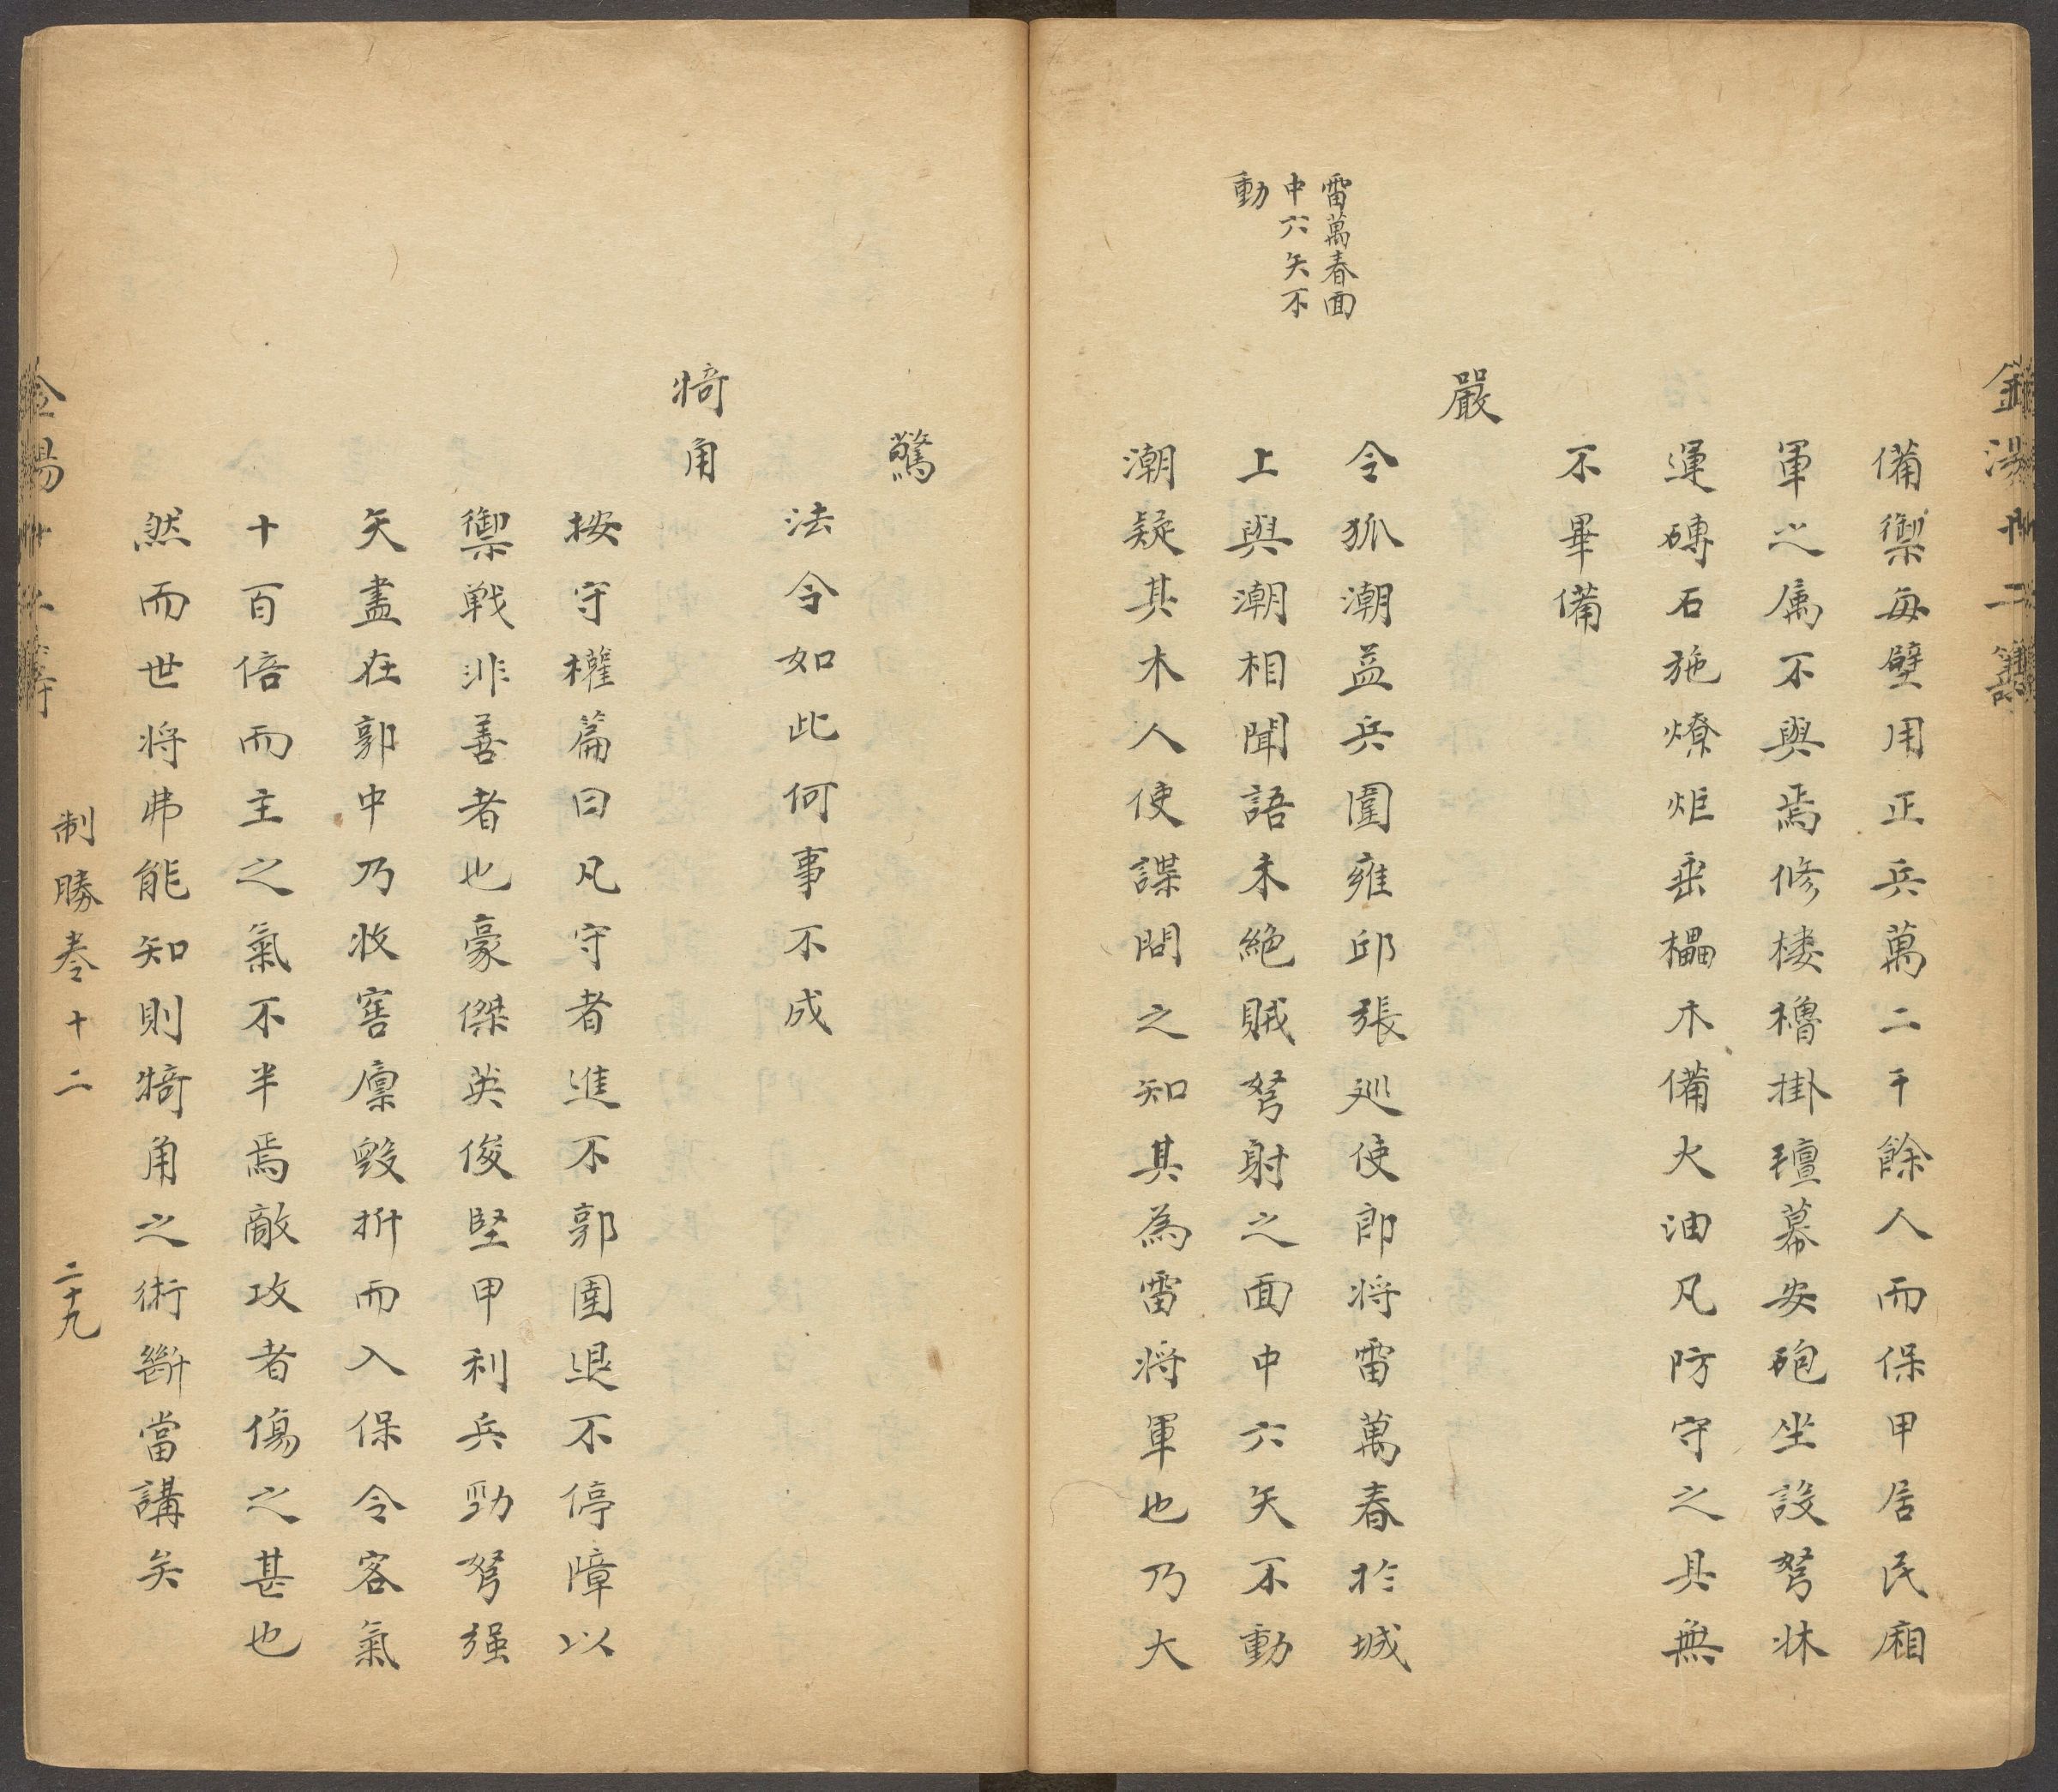 備禦每壁用正兵萬二千餘人而保甲居民廂
軍之属不與焉修楼櫓掛氊幕安砲坐設弩牀
運磚石施燎炬垂檑木備火油凡防守之具無
不畢備
嚴
令狐潮益兵圍雍邱張巡使郎将雷萬春於城
上與潮相聞語未絶賊弩射之面中六矢不動
雷萬春面
中六矢不
動
潮疑其木人使諜問之知其為雷将軍也乃大
驚
法令如此何事不成
犄角
按守權篇曰凡守者進不郭圍退不停障以
禦戦非善者也豪傑英俊堅甲利兵勁弩强
矢盡在郭中乃收窖廪毁折而入保令客氣
十百倍而主之氣不半焉敵攻者傷之甚也
然而世将弗能知則犄角之術斷當講矣
制勝卷十二 二十九